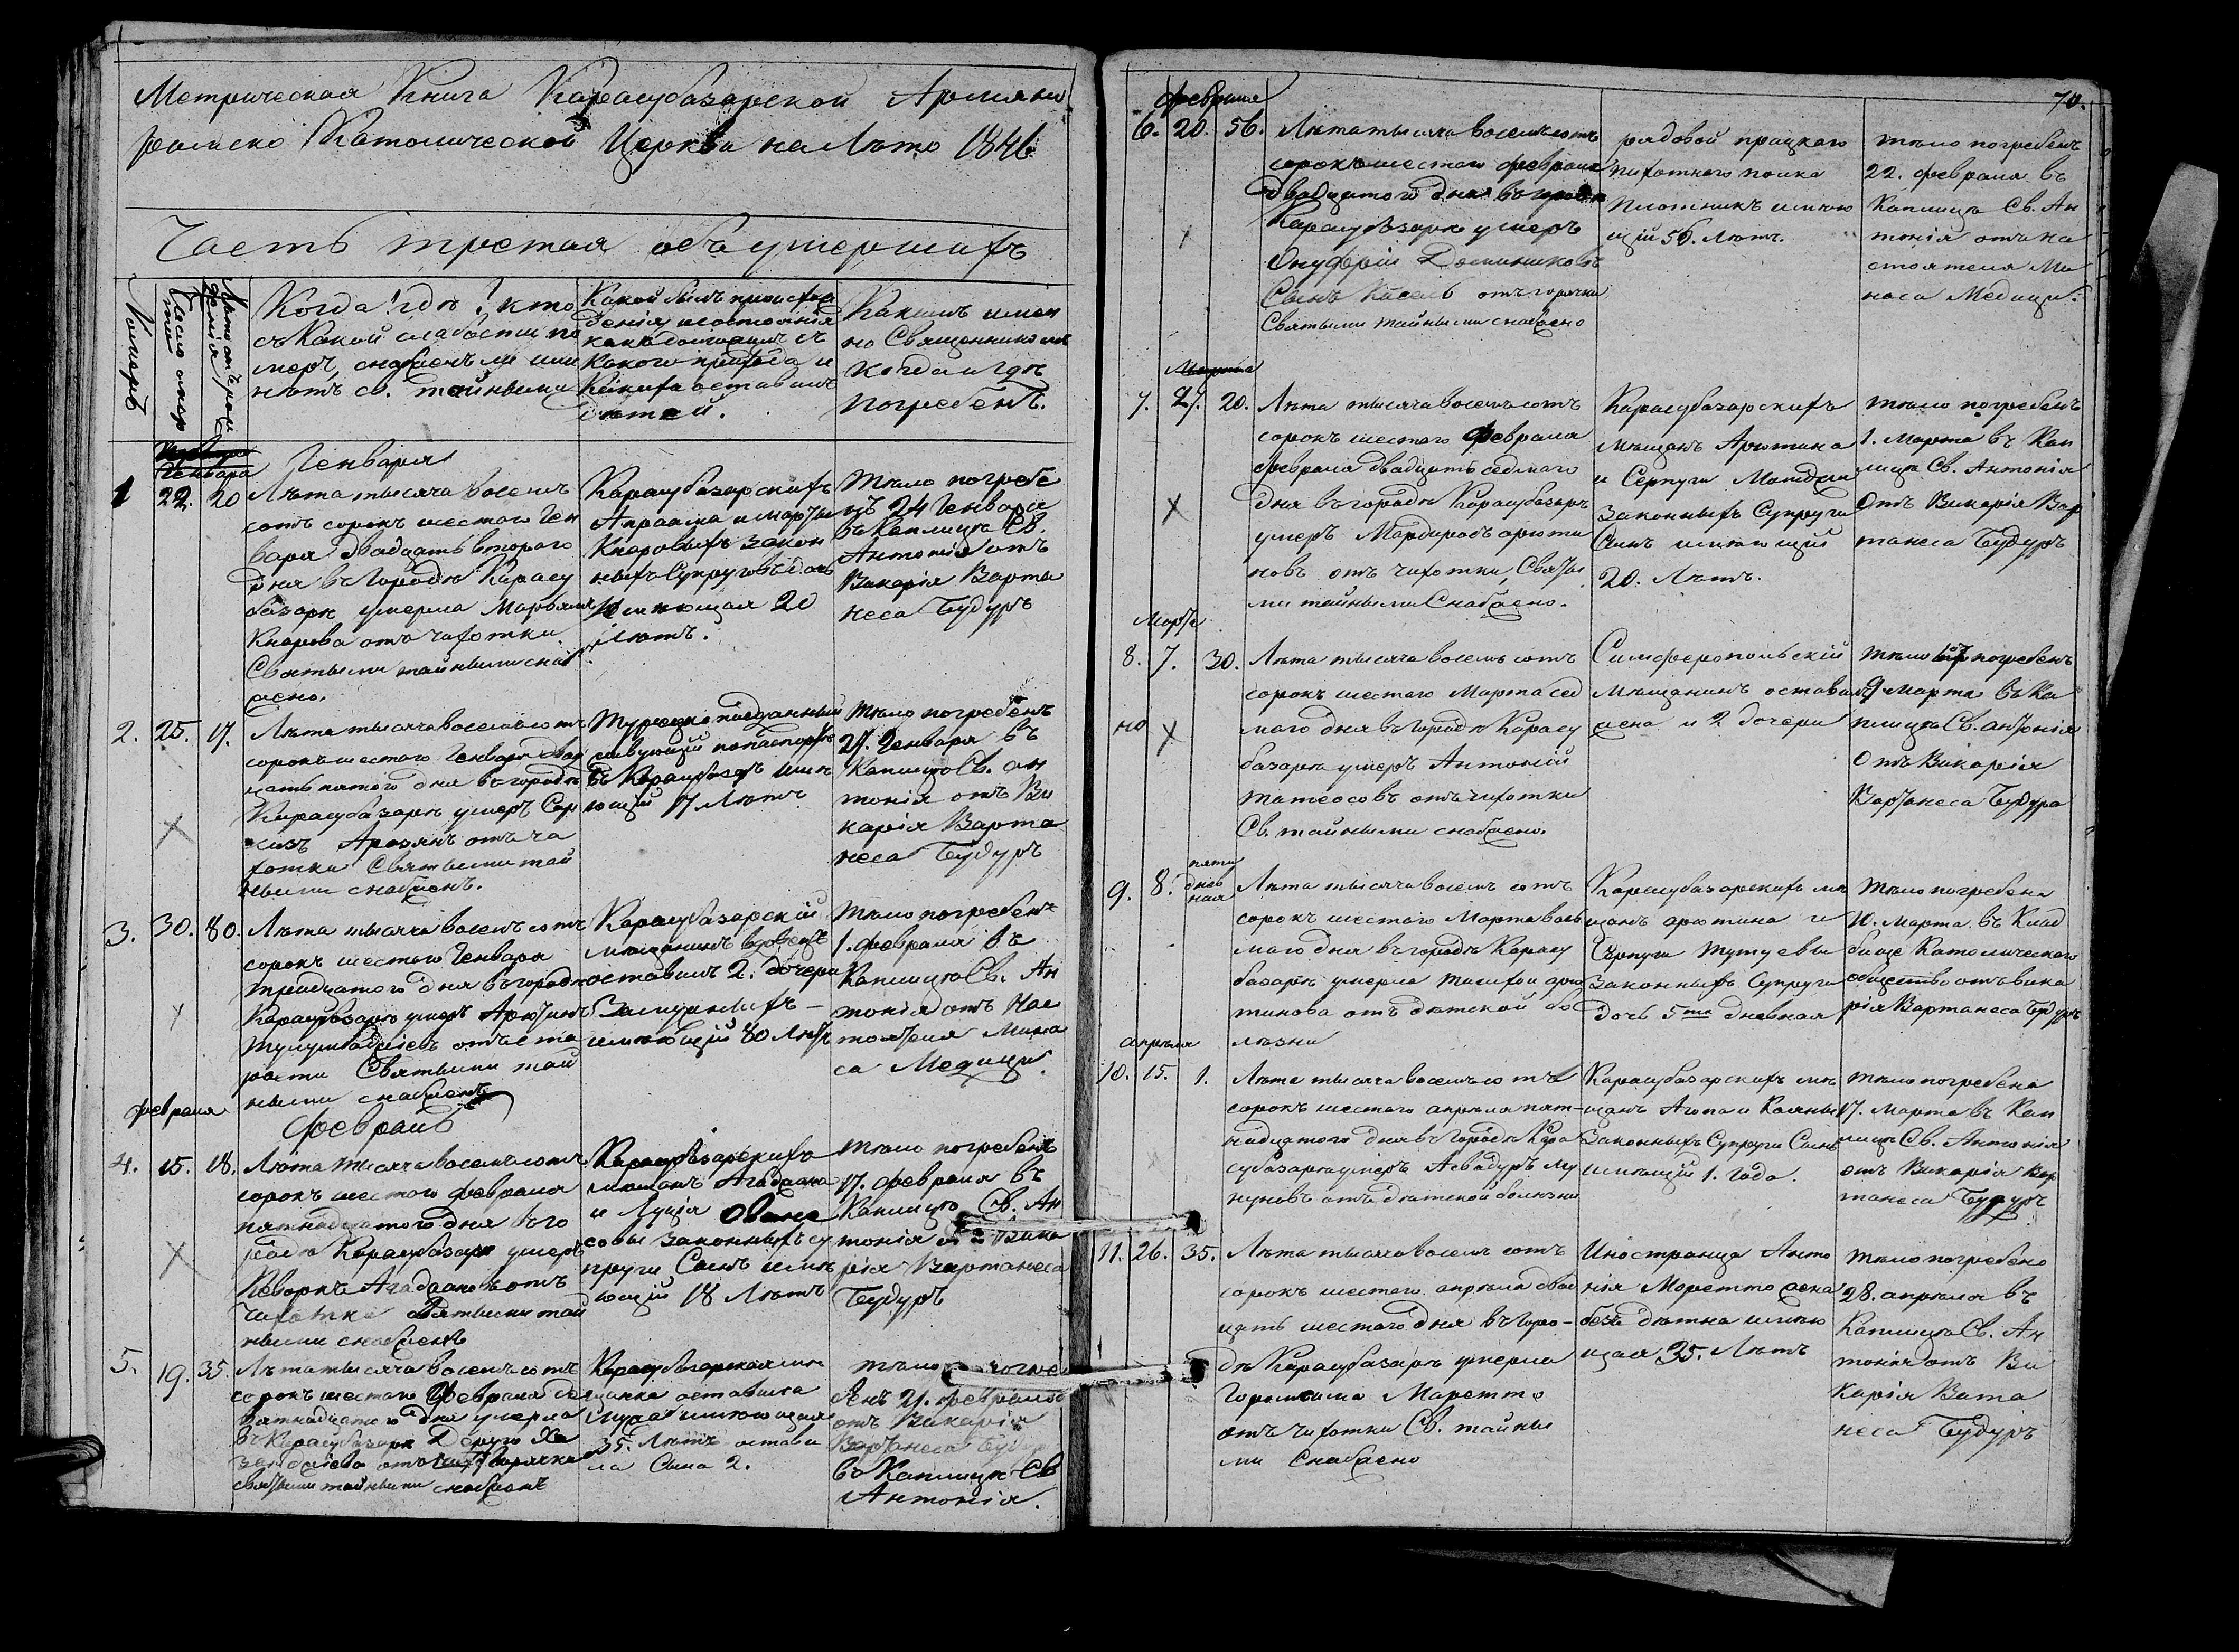 Метрическая Книга Карасубазарской Армяно
римско Католической Церкви на Лѣто 1846
Часть третая объ умершихъ
Номеръ
Число смер
ти
Лѣто отъ рож
денія
Когда? гдѣ? кто
съ Какой слабости по
меръ, снабженъ ли или
нѣтъ св. тайными
Какой былъ происхож
денія и состоянія
какъ
Какого прихода и
Какихъ оставилъ
дѣтей.
Какимъ имен
но Священникомъ
когда и гдѣ
погребенъ.
Генваря
Генваря
1
22.
20
Лѣта тысяча восемь
сотъ сорокъ шестаго Ген
варя двадцать втораго
дня въ Городѣ Карасу
базарѣ умерла
Кнарова отъ чихотки
Святыми тайными снаб
жено.
Карасубазарскихъ
Апраама и Марты
Кнаровыхъ закон
ныхъ Супруговъ дочь
имѣющая 20
Лѣтъ.
Тѣло погребе
нъ 24 Генваря
въ Каплицѣ Св.
Антонія отъ
Викарія Варта
неса Будуръ
2.
25.
17.
Лѣта тысяча восемь сотъ
сорокъ шестаго Генваря двад
цать пятого дня въ городѣ
Карасубазарѣ умеръ Сар
кизъ Арозянъ отъ ча
хотки Святыми тай
ными снабженъ.
Турецко подданный
по паспорту
въ Карасубазарѣ имѣ
ющій 17 Лѣтъ
Тѣло погребенъ
27. Генваря въ
Каплицѣ Св. Ан
тонія отъ Ви
карія Варта
неса Будуръ
3.
30.
80.
Лѣта тысяча восемь сотъ
сорокъ шестаго Генваря
тридцатого дня въ городѣ
Карасубазарѣ умеръ Арютинъ
отъ ста
рости Святыми тай
ными снабженъ
Карасубазарскій
мѣщанинъ вдовецъ
оставилъ 2. дочери
Замужнихъ
имѣющій 80 Лѣтъ
Тѣло погребенъ
1. февраля въ
Каплицѣ Св. Ан
тонія отъ Нас
тоятеля Мина
са Медици
февраля
Февраль
4.
15.
18.
Лѣта тысяча восемь сотъ
сорокъ шестаго февраля
пятнадцатого дня въ го
родѣ Карасубазарѣ умеръ
Кеворкъ Агаджановъ отъ
чихотки Святыми тай
ными снабженъ
Карасубазарскихъ
мѣщанъ Агаджана
и Луція Оване
совы законныхъ су
пруги Сынъ имѣ
ющій 18 Лѣтъ
Тѣло погребенъ
17. февраля въ
Каплицѣ Св. Ан
тонія отъ Вика
рія Вартанеса
Будуръ
5.
19.
35.
Лѣта тысяча восемь сотъ
сорокъ шестаго Февраля де
вятнадцатого дня умерла
въ Карасубазарѣ
отъ горячки
святыми тайными снабженъ
Карасубазарская мѣ
щанка оставила
мужа имѣющая
35. Лѣтъ остави
ла Сына 2.
Тѣло погре
бенъ 21. февраля
отъ Викарія
Вартанеса Будур
въ Каплицѣ Св
Антонія.
70.
февраля
6.
20.
56.
Лѣта тысяча восемь сотъ
сорокъ шестаго февраля
двадцатого дня въ городѣ
Карасубазарѣ умеръ
Онуфрій Доминиковъ
Сынъ Кисель отъ горячки
Святыми тайными снабжено
рядовой
пихотного полка
Плотникъ имѣю
щій 56. Лѣтъ.
Тѣло погребенъ
22. февраля въ
Каплицѣ Св. Ан
тонія отъ на
стоятеля Ми
наса Медици.
Марта
7.
27.
20.
Лѣта тысяча восемь сотъ
сорокъ шестаго Февраля
февраля двадцать седмаго
дня въ городѣ Карасубазарѣ
умеръ Мардиросъ арюти
новъ отъ чихотки, Святы
ми тайными Снабжено.
Карасубазарскихъ
мѣщанъ Арютина
и Серпуги
законныхъ Супруги
Сынъ имѣющій
20. Лѣтъ.
Тѣло погребенъ
1. Марта въ Кап
лицѣ Св. Антонія
Отъ Викарія Вар
танеса Будуръ
Марта
8.
7.
30.
но
Лѣта тысяча восемь сотъ
сорокъ шестаго Марта сед
маго дня въ городѣ Карасу
базарѣ умеръ Антоній
Татеосовъ отъ чихотки
Св. тайными снабжено.
Симферопольскій
Мѣщанинъ оставилъ
жена и 2 дочери
Тѣло погребенъ
9 Марта въ Ка
плицѣ Св. антонія
Отъ Викарія
Вартанеса Будура
9.
8.
пяти
днев
ная
Лѣта тысяча восемь сотъ
сорокъ шестаго Марта вось
маго дня въ городѣ Карасу
базарѣ умерла арю
тинова отъ дѣтской бо
лѣзни
Карасубазарскихъ мѣ
щанъ арютина и
законныхъ Супруги
дочь 5ти дневная
Тѣло погребена
10. Марта въ Клад
бище Католическаго
общество отъ вика
рія Вартанеса Будуръ
апрѣля
10.
15.
1.
Лѣта тысяча восемь сотъ
сорокъ шестаго апрѣля пят-
надцатого дня въ Городѣ Кара
субазарѣ умеръ Асвадуръ
отъ дѣтской болѣзни
Карасубазарскихъ мѣ
щанъ Агопа и
законныхъ Супруги Сынъ
имѣющій 1. Года.
Тѣло погребена
17. Марта въ Кап
лицѣ Св. Антонія
отъ Викарія Вар
танеса Будуръ
11.
26.
35.
Лѣта тысяча восемь сотъ
сорокъ шестаго апрѣля двад
цать шестаго дня въ Горо-
дѣ Карасубазарѣ умерла
Маретто
отъ чихотки Св. тайны
ми снабжено
Иностранца Анто
нія Моретто жена
безъ дѣтна имѣю
щая 35. Лѣтъ
Тѣло погребено
28. апрѣля въ
Каплицѣ Св. Ан
тонія отъ Ви
карія Вата
неса Будуръ